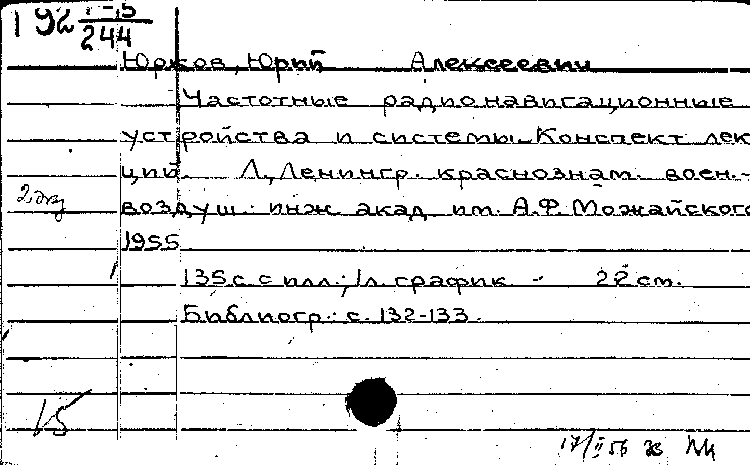 192
244
Юрков, Юрий Алексеевич
Частотные радионавигационные
устройства и системы. Конспект лек-
ций. Л., Ленингр. краснознам. воен.-
2 экз
воздуш. инж. акад им. А.Ф. Можайского
1955
135 с. с илл.; 1 л. график. - 22 см.
Библиогр.: с. 132-133.
15
17/II 56